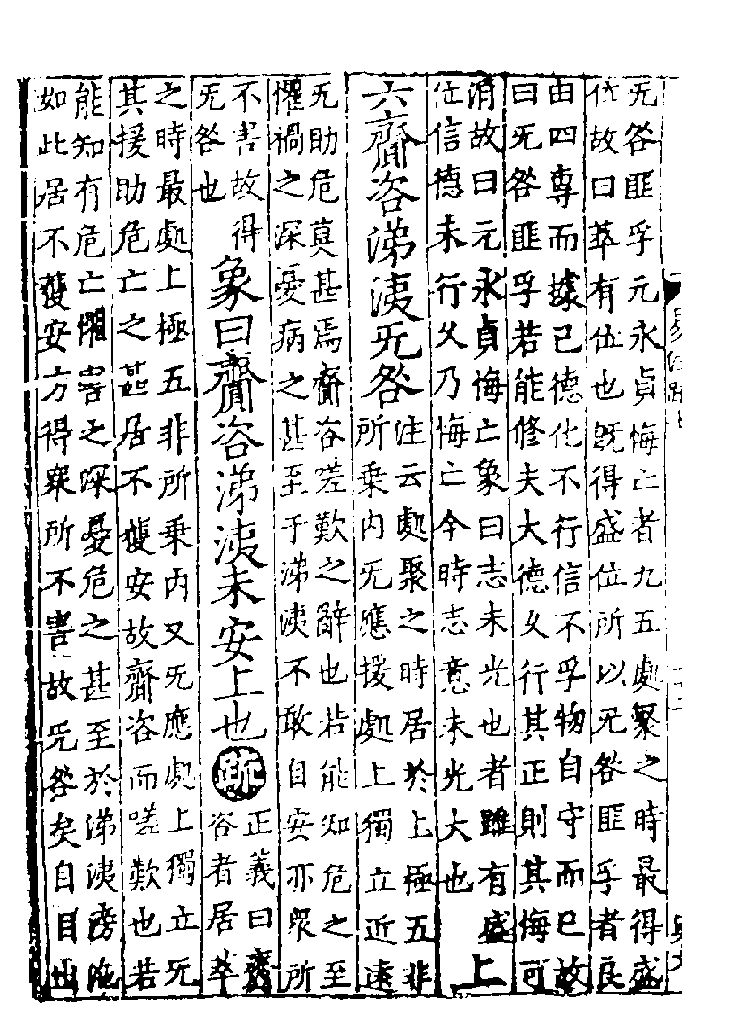 无咎匪孚元永貞悔亡者九五處聚之時最得盛
位故曰萃有位也既得盛位所以无咎匪孚者良
由四專而據己德化不行信不孚物自守而已故
曰无咎匪孚若能修夫大德久行其正則其悔可
消故曰元永貞悔亡象曰志未光也者雖有盛
位信德未行久乃悔亡今時志意未光大也
上
六齎咨涕洟无咎
注云處聚之時居於上極五非
所乘内无應援處上獨立近遠
无助危莫甚焉齎咨嗟歎之辭也若能知危之至
懼禍之深憂病之甚至于涕洟不敢自安亦衆所
不害故得
无咎也
象曰齎咨涕洟未安上也
疏
正義曰齎
咨者居萃
之時最處上極五非所乘内又无應處上獨立无
其援助危亡之甚居不獲安故齎咨而嗟歎也若
能知有危亡懼害之深憂危之甚至於涕洟滂沱
如此居不獲安方得衆所不害故无咎矣自目出